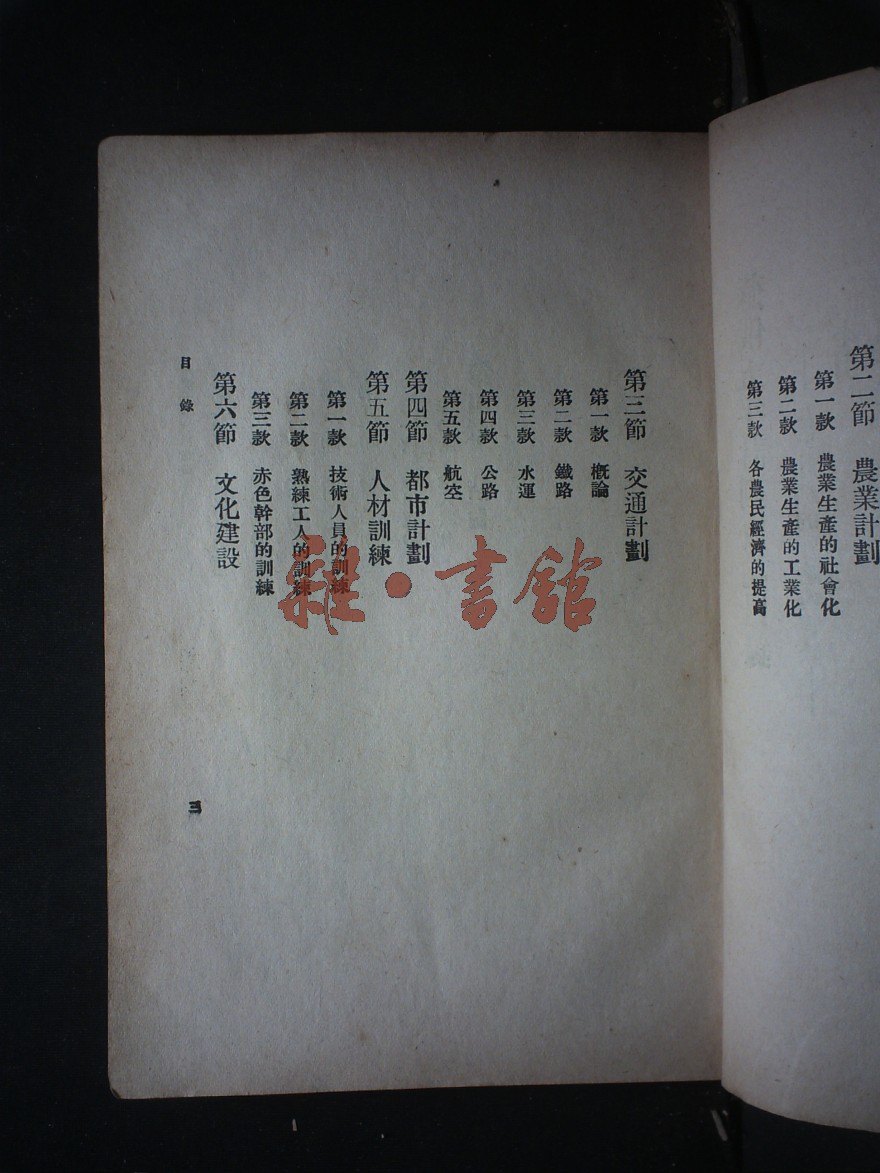 第二節 農業計劃
第一款 農業生產的社會化
第二款 農業生產的工業化
第三款 各農民經濟的提高
第三節 交通計劃
第一款 概論
第二款 鐵路
第三款 水運
第四款 公路
第五款 航空
第四節 都市計劃
第五節 人材訓練
第一款 技術人員的訓練
第二款 熟練工人的訓練
第三款 赤色幹部的訓練
第六節 文化建設
目錄
三
雜·書館